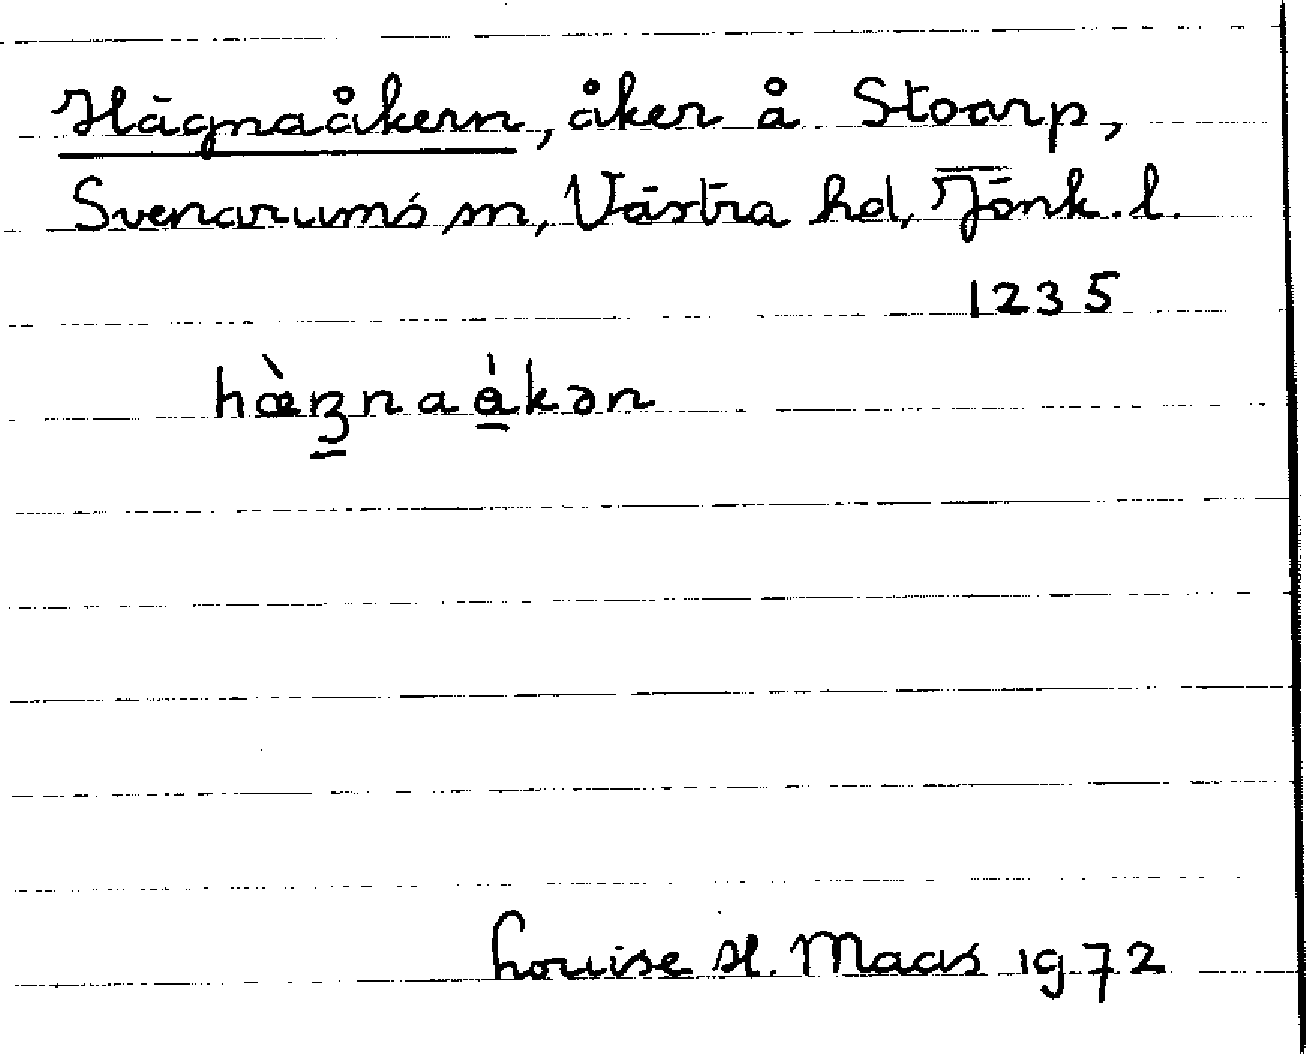 Hägnaåkern, åker å Stoarp,
Svenarums sn, Västra hd, Jönk. l.
1235
hæ̀ŋnaåkən
Louise H. Maas 1972